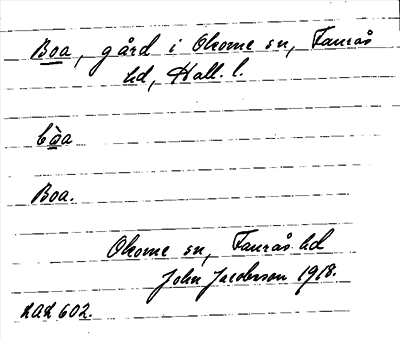 Boa, gård i Okome sn, Faurås
hd, Hall. l.
bòa
Boa.
Okome sn, Faurås hd
John Jacobsson 1918.
LAL 602.